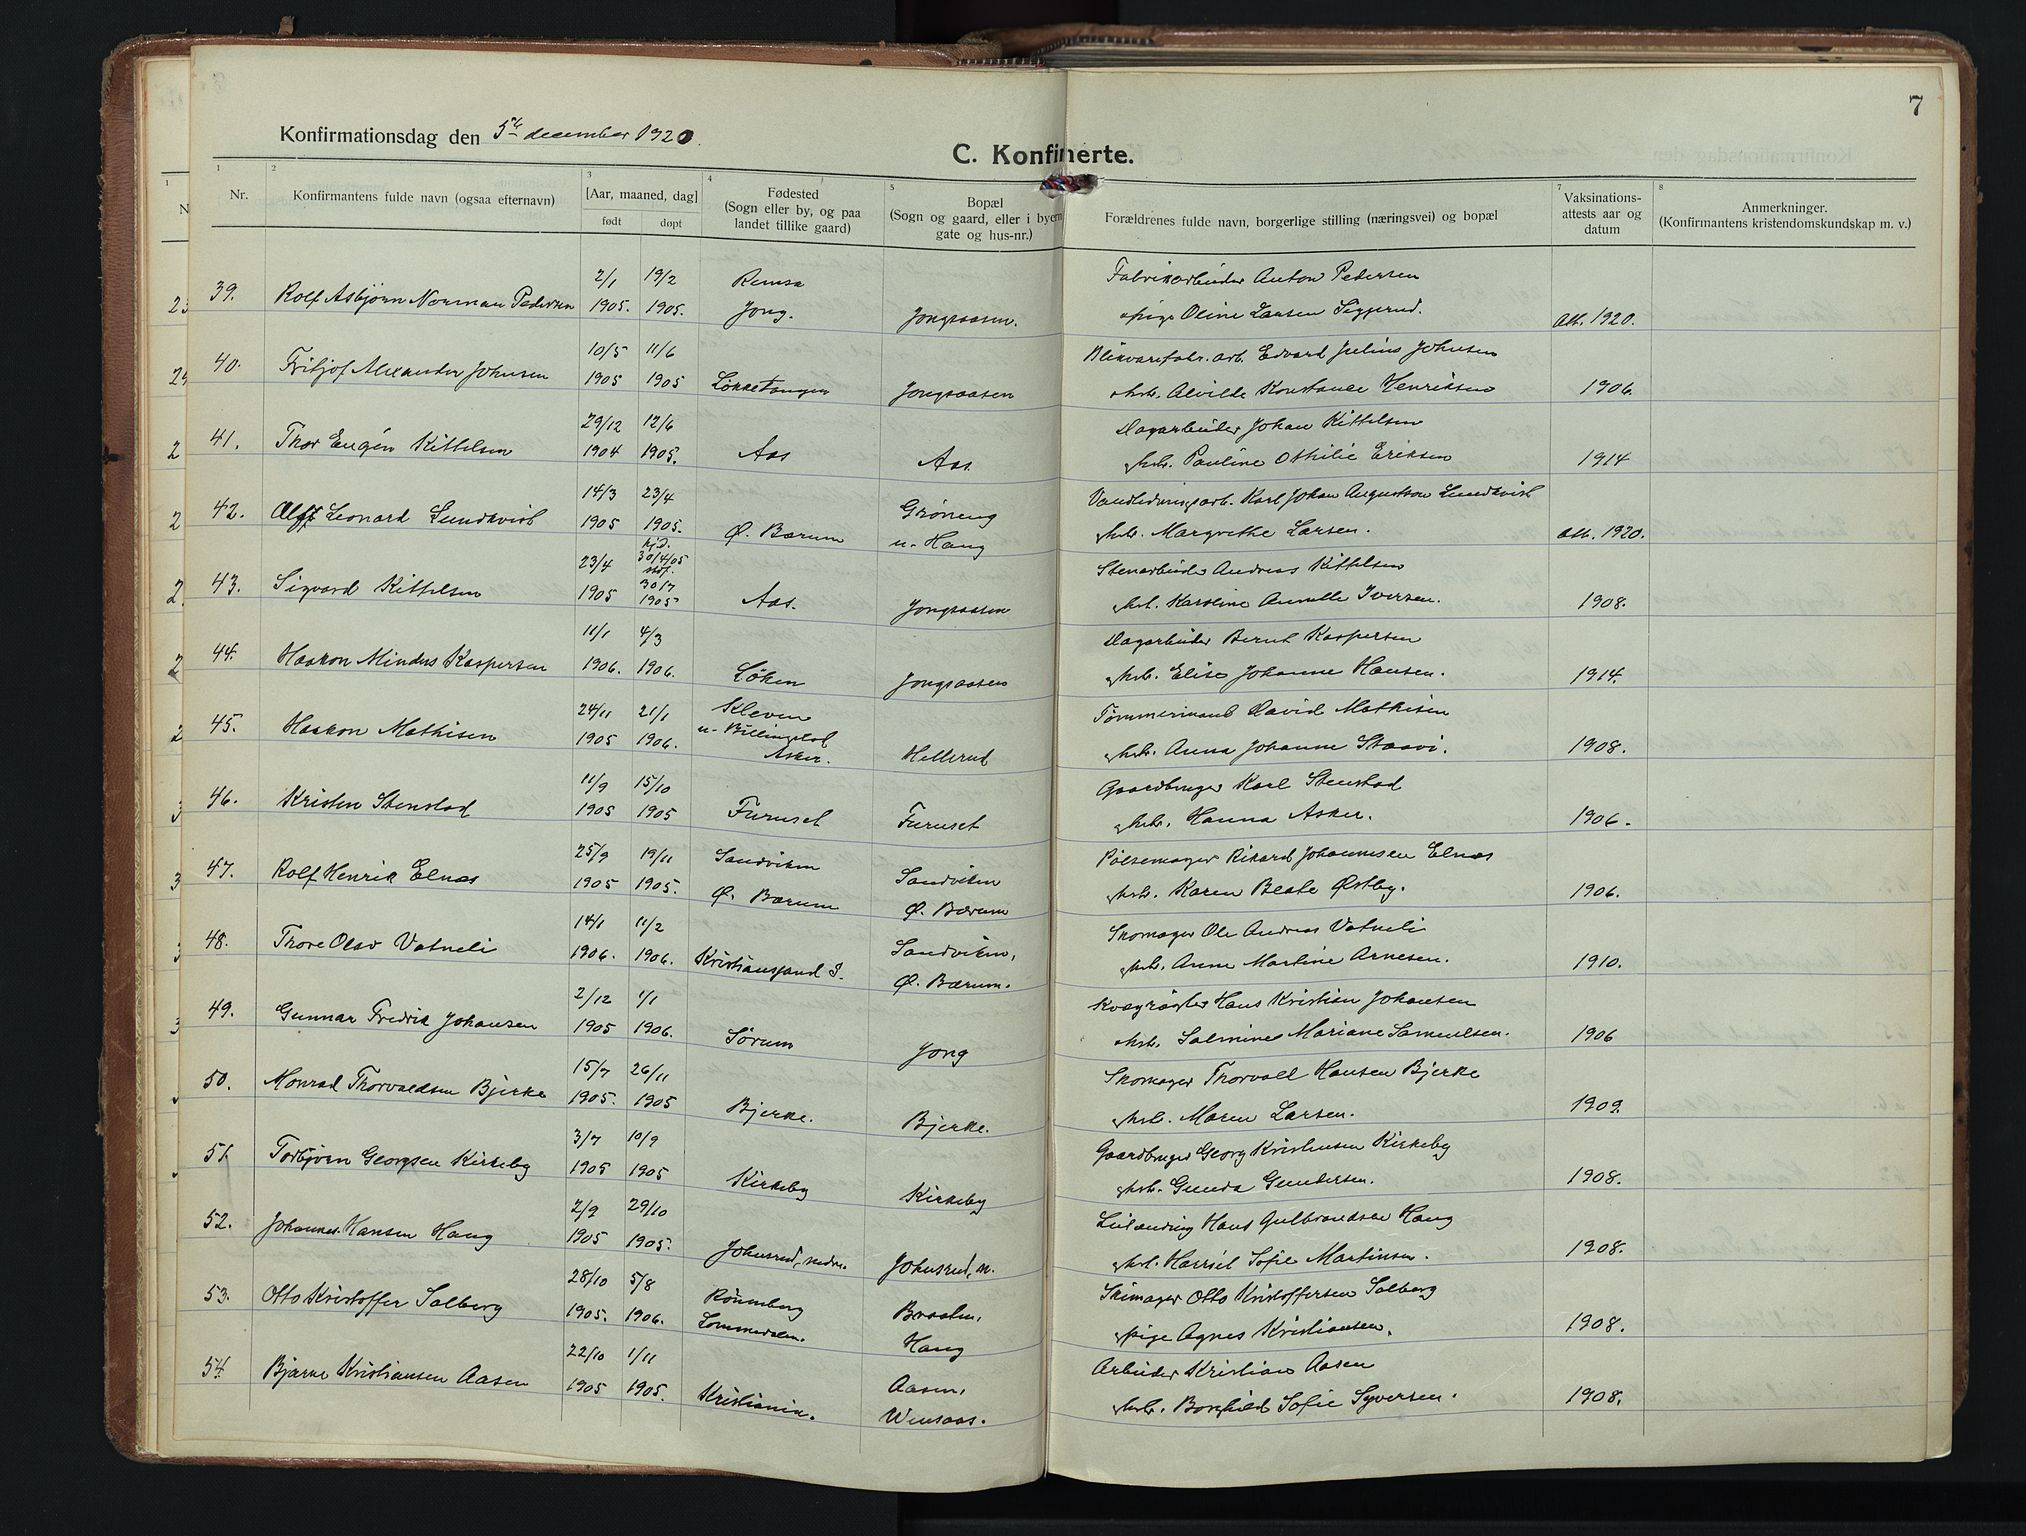 7
Konfirmationsdag den 5te december 1920.
C. Konfirmerte.
1 2 3 4 5 7 8
Nr. Konfirmantens fulde navn (ogsaa efternavn) [Aar, maaned, dag] født døpt Fødested (Sogn eller by, og paa landet tillike gaard) Bopæl (Sogn og gaard, eller i byern gate og hus-nr.) Forældrenes fulde navn, borgerlige stilling (næringsvei) og bopæl Vaksinations-attests aar og datum Anmerkninger. (Konfirmantens kristendomskundskap m. v.)
39. 2/1 19/2 Fabrikarbeider Anton Pedersen
Rolf Asbjørn Norman Pedersen 1905. 1905. Jong. Jongsaasen. pige Oline Larsen Siggerud. att. 1920.
40. 10/5 11/6 Blikvarefabr. arb. Edvard Julius Johnsen
Fritjof Alexander Johnsen 1905 1905 Løkketangen Jongsaasen hstr. Alvilde Konstance Henriksen 1906.
41. 29/12 12/6 Dagarbeider Johan Kittelsen
Thor Eugén Kittelsen 1904 1905. Aas Aas hstr. Pauline Othilie Eriksen 1914
42. 14/3 23/4 Grøneng Vandledningsarb. Karl Johan Augustson Lundkvist
Alf Leonard Lundkvist 1905 1905. Ø. Bærum u. Haug hstr. Margrethe Larsen. att. 1920.
43. 23/4 hjd. 30/4/05 stdf. Stenarbeider Andreas Kittelsen
Sigvard Kittelsen 1905 30/7 1905 Aas. Jongsaasen hstr. Karoline Amelle Iversen. 1908.
44. 11/1 4/3 Dagarbeider Bernt Kaspersen
Haakon Mindus Kaspersen 1906. 1906. Løken Jongsaasen hstr. Elise Johanne Hansen. 1914.
45. 24/11 21/1 Kleven Tømmermand David Mathisen
Haakon Mathisen 1905 1906. u. Billingstad Asker. Hellerud hstr. Anna Johanne Staavi. 1908.
46. 11/9 15/10 Gaardbruger Karl Stenstad
Kristen Stenstad 1905 1905 Furuset Furuset hstr. Hanna Asker. 1906.
47. 25/9 19/11 Sandviken Sandviken Pølsemager Rikard Johannesen Elnæs
Rolf Henrik Elnæs 1905 1905. Ø. Bærum Ø. Bærum hstr. Karen Beate Østby. 1906.
48. 14/1 11/2 Sandviken, Skomager Ole Andreas Vatneli
Thore Olav Vatneli 1906. 1906. Kristiansand S. Ø. Bærum. hstr. Anne Martine Arnesen. 1910.
49. 2/12 1/1 Kvægrøgter Hans Kristian Johansen
Gunnar Fredrik Johansen 1905 1906. Sørum Jong hstr. Salmine Mariane Samuelsen. 1906
50. 15/7 26/11 Skomager Thorvall Hansen Bjerke
Monrad Thorvaldsen Bjerke 1905. 1905 Bjerke. Bjerke. hstr. Maren Larsen. 1909.
51. 3/7 10/9 Gaardbruger Georg Kristensen Kirkeby
Torbjørn Georgsen Kirkeby 1905 1905 Kirkeby Kirkeby hstr. Gunda Gundersen. 1908.
52. 2/9 29/10 Leilending Hans Gulbrandsen Haug
Johannes Hansen Haug 1905 1905. Johnsrud, nedre. Johnsrud, n. hstr. Sofie Martinsen. 1908.
53. 28/10 5/8 Rønneberg Braaten, Skomager Otto Kristoffersen Solberg
Otto Kristoffer Solberg 1905. 1906. Lommedalen. Haug pige Agnes Kristiansen. 1908.
54. 22/10 1/11 Aasen, Arbeider Kristian Aasen
Bjarne Kristiansen Aasen 1905 1905. Kristiania. hstr. Borghild Sofie Syversen. 1908.